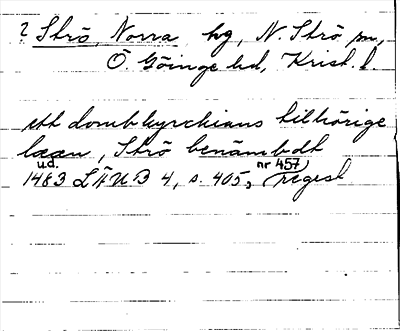 ? Strö, Norra hg, N. Strö sn,
Ö. Göinge hd, Krist. l.
ett dombkyrckians tilhörige
læen, Strö benämbdt
u.d.
1483 LÄUB 4, s. 405, nr 457, regest